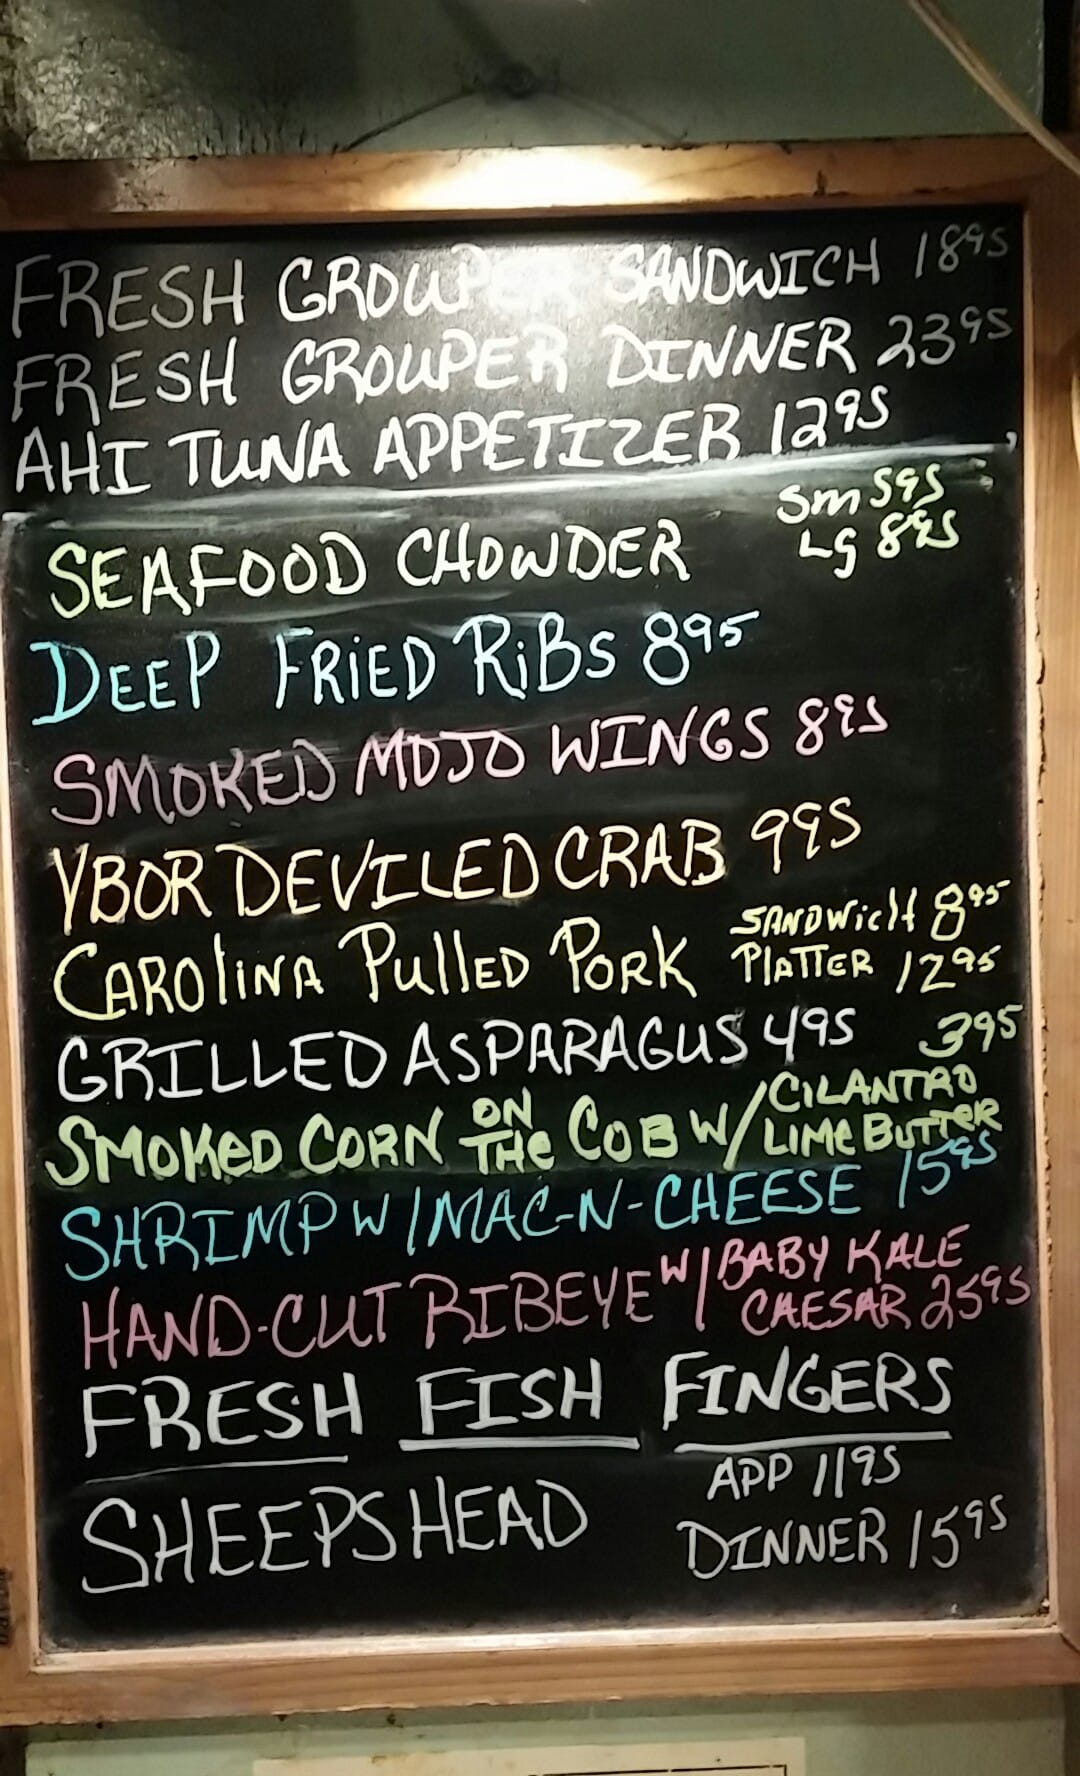 FRESH GROUPER SANDWICH 18 95
FRESH GROUPER DINNER 23 95
AHI TUNA APPETIZER 12 95
SEAFOOD CHOWDER Sm 5 95
Lg 8 95
DEEP FRiED RiBS 8 95
SMOKED MOJO WINGS 8 95
YBOR DEVILED CRAB 9 95
CAROlINA PullED PORK SANDWicH 8 95
PlATTER 12 95
GRILLED ASPARAGUS 4 95
3 95
SMOKED CORN ON THE COB W/ CILANTRO LIME BUTTER
SHRIMP W/ MAC-N-CHEESE 15 95
HAND-CUT RIBEYE W/ BABY KALE
CAESAR 25 95
FRESH FISH FINGERS
SHEEPSHEAD APP 11 95
DINNER 15 95